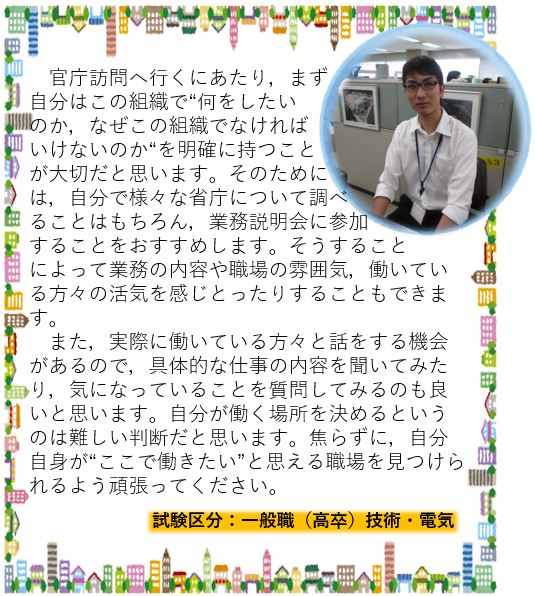 官庁訪問へ行くにあたり，まず
自分はこの組織で“何をしたい
のか，なぜこの組織でなければ
いけないのか“を明確に持つこと
が大切だと思います。そのために
は，自分で様々な省庁について調べ
ることはもちろん，業務説明会に参加
することをおすすめします。そうすること
によって業務の内容や職場の雰囲気，働いてい
る方々の活気を感じとったりすることもできま
す。
また，実際に働いている方々と話をする機会
があるので，具体的な仕事の内容を聞いてみた
り，気になっていることを質問してみるのも良
いと思います。自分が働く場所を決めるという
のは難しい判断だと思います。焦らずに，自分
自身が“ここで働きたい”と思える職場を見つけら
れるよう頑張ってください。
試験区分：一般職（高卒）技術・電気